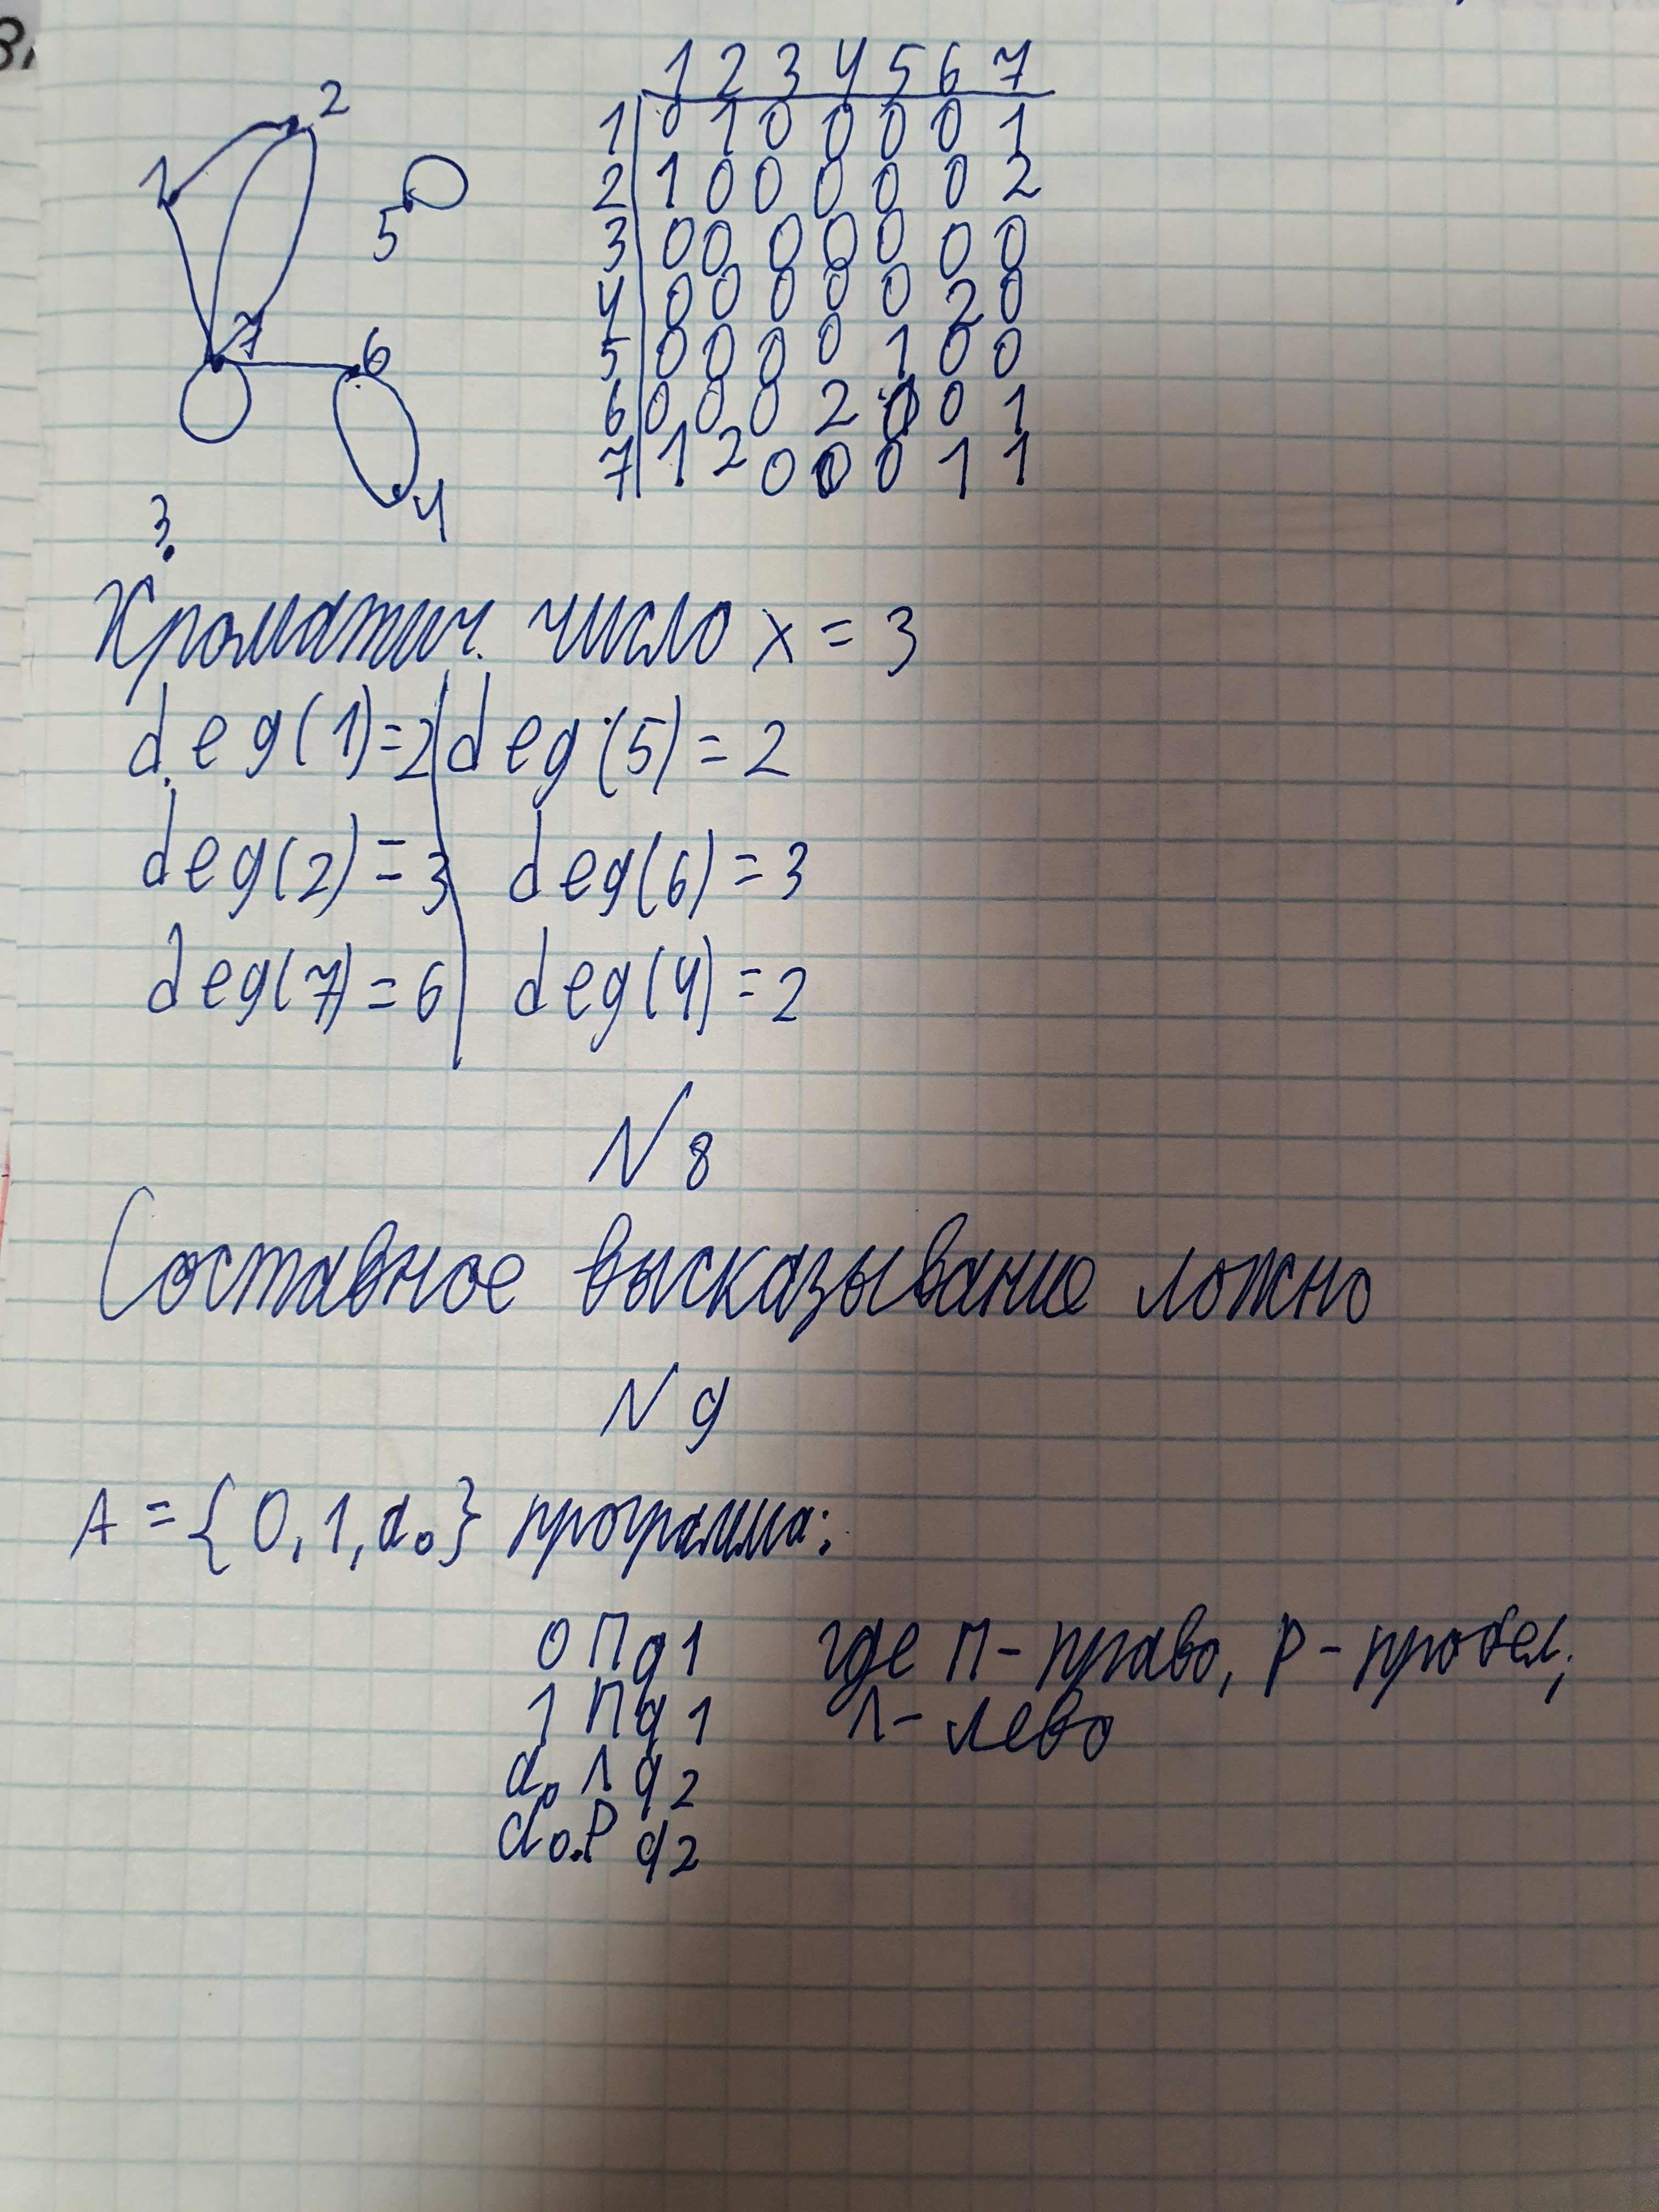 2
1
5
7
6
4
3
1 2 3 4 5 6 7
1 0 1 0 0 0 0 1
2 1 0 0 0 0 0 2
3 0 0 0 0 0 0 0
4 0 0 0 0 0 2 0
5 0 0 0 0 1 0 0
6 0 0 0 2 0 0 1
7 1 2 0 0 0 1 1
Хроматич. число x = 3
deg(1)=2 deg(5)=2
deg(2)=3 deg(6)=3
deg(7)=6 deg(4)=2
N 8
Составное высказывание ложно
N 9
A = {0, 1, a₀} программа:
0 П q1 где П - право, P - пробел,
1 П q1 Л - лево
a₀ Л q2
a₀.P q2